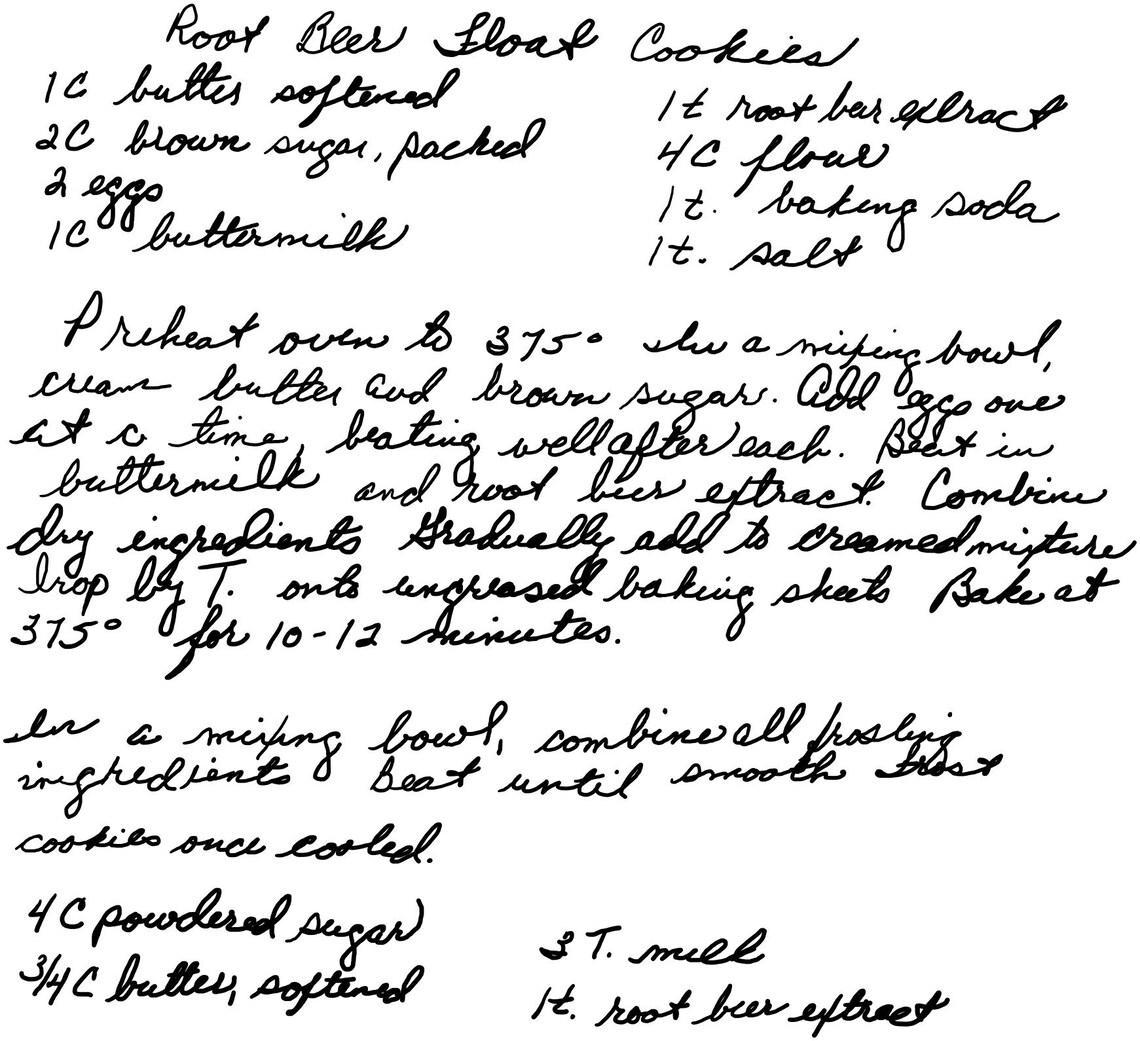 Root Beer Float Cookies
1C butter softened
2C brown sugar, packed
2 eggs
1C buttermilk
1t root beer extract
4C flour
1t. baking soda
1t. salt
Preheat oven to 375° In a mixing bowl,
cream butter and brown sugar. Add eggs one
at a time, beating well after each. Beat in
buttermilk and root beer extract. Combine
dry ingredients Gradually add to creamed mixture
Drop by T. onto ungreased baking sheets Bake at
375° for 10-12 minutes.
In a mixing bowl, combine all frosting
ingredients Beat until smooth Frost
cookies once cooled.
4C powdered sugar
3/4C butter, softened
3 T. milk
1t. root beer extract